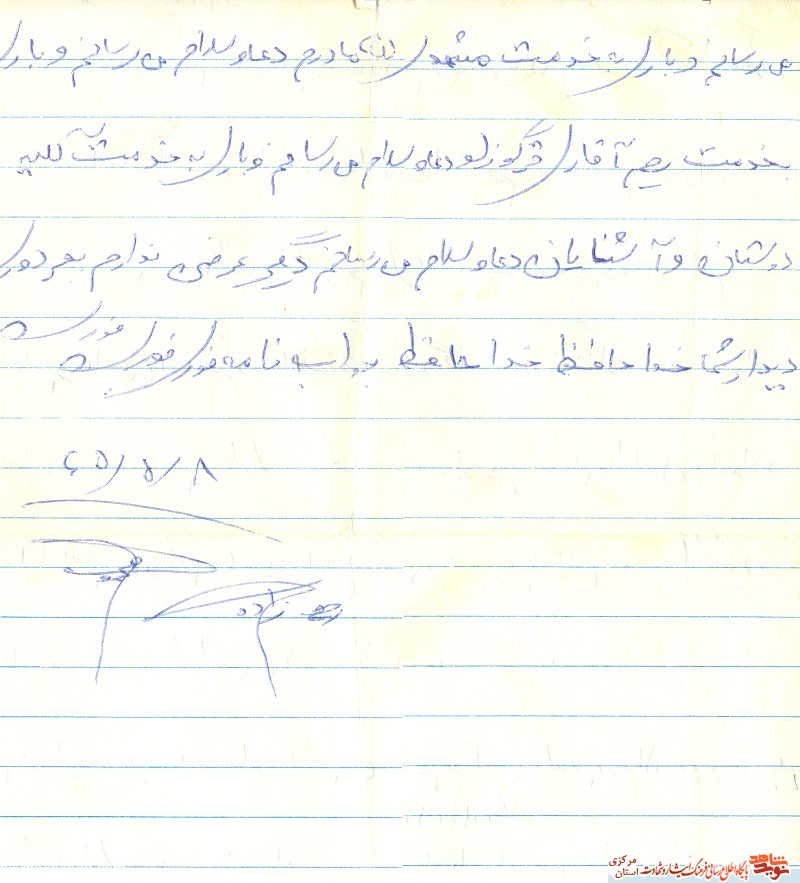 می رسانم و باری به خدمت مشهدی مادرم دعا و سلام می رسانم و باری
بخدمت رحیم آقای قرگوزلو دعا و سلام می رسانم و باری به خدمت کلیه
دوستان و آشنایان دعا و سلام می رسانم دگر عرضی ندارم بجز دوری
دیدار شما خدا حافظ خدا حافظ جواب نامه فوری فوری فوری
۶۵/۱/۸
زاده
نوید شاهد پایگاه اطلاع رسانی فرهنگ ایثار و شهادت استان مرکزی